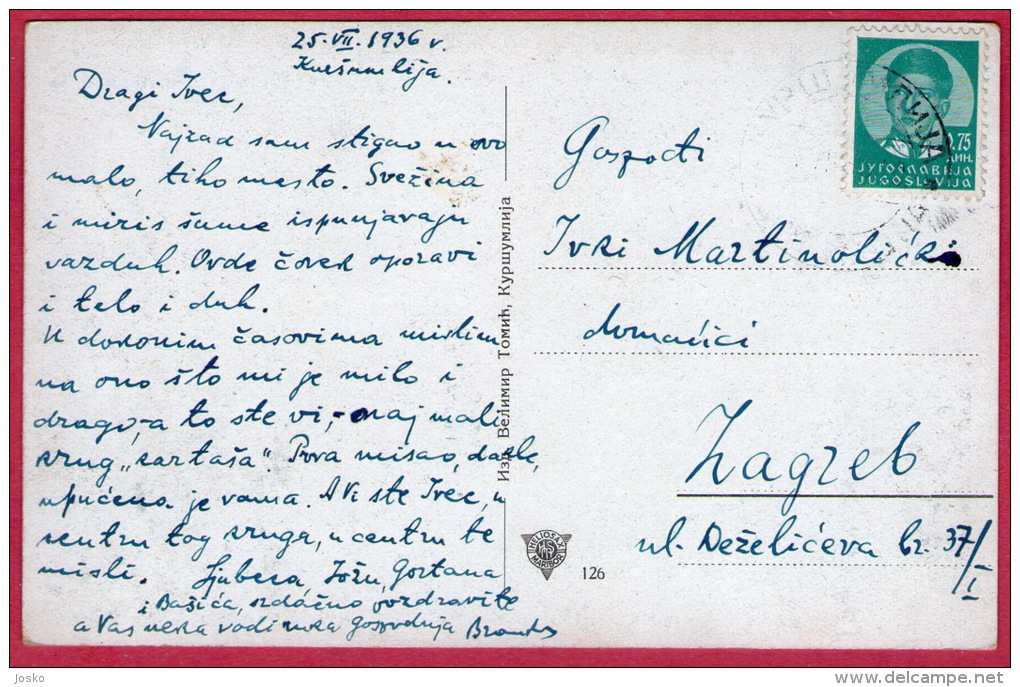 25. VII. 1936 г.
Kuršumlija.
Dragi Ivec,
Najzad sam stigao u ovo
malo, tiho mesto. Svežina
i miris šume ispunjavaju
vazduh. Ovde čovek oporavi
i telo i duh.
U dokonim časovima mislim
na ono što mi je milo i
drago, a to ste vi, - onaj mali
krug „kartaša“. Prva misao, dakle,
upućena je vama. A Vi ste Ivec, u
centru tog kruga, u centru te
misli. Ljubeca, Jožu, Gortana
i Bašića, srdačno pozdravite
a Vas neka vodi
Gospodi
Ivki Martinolićki
domaćici
Zagreb
ul. Deželićeva br. 37/I
Изд. Велимир Томић, Куршумлија
HELIOSAK
MARIBOR
126
0.75
ДИН.
ЈУГОСЛАВИЈА
JUGOSLAVIJA
Josko
www.delcampe.net